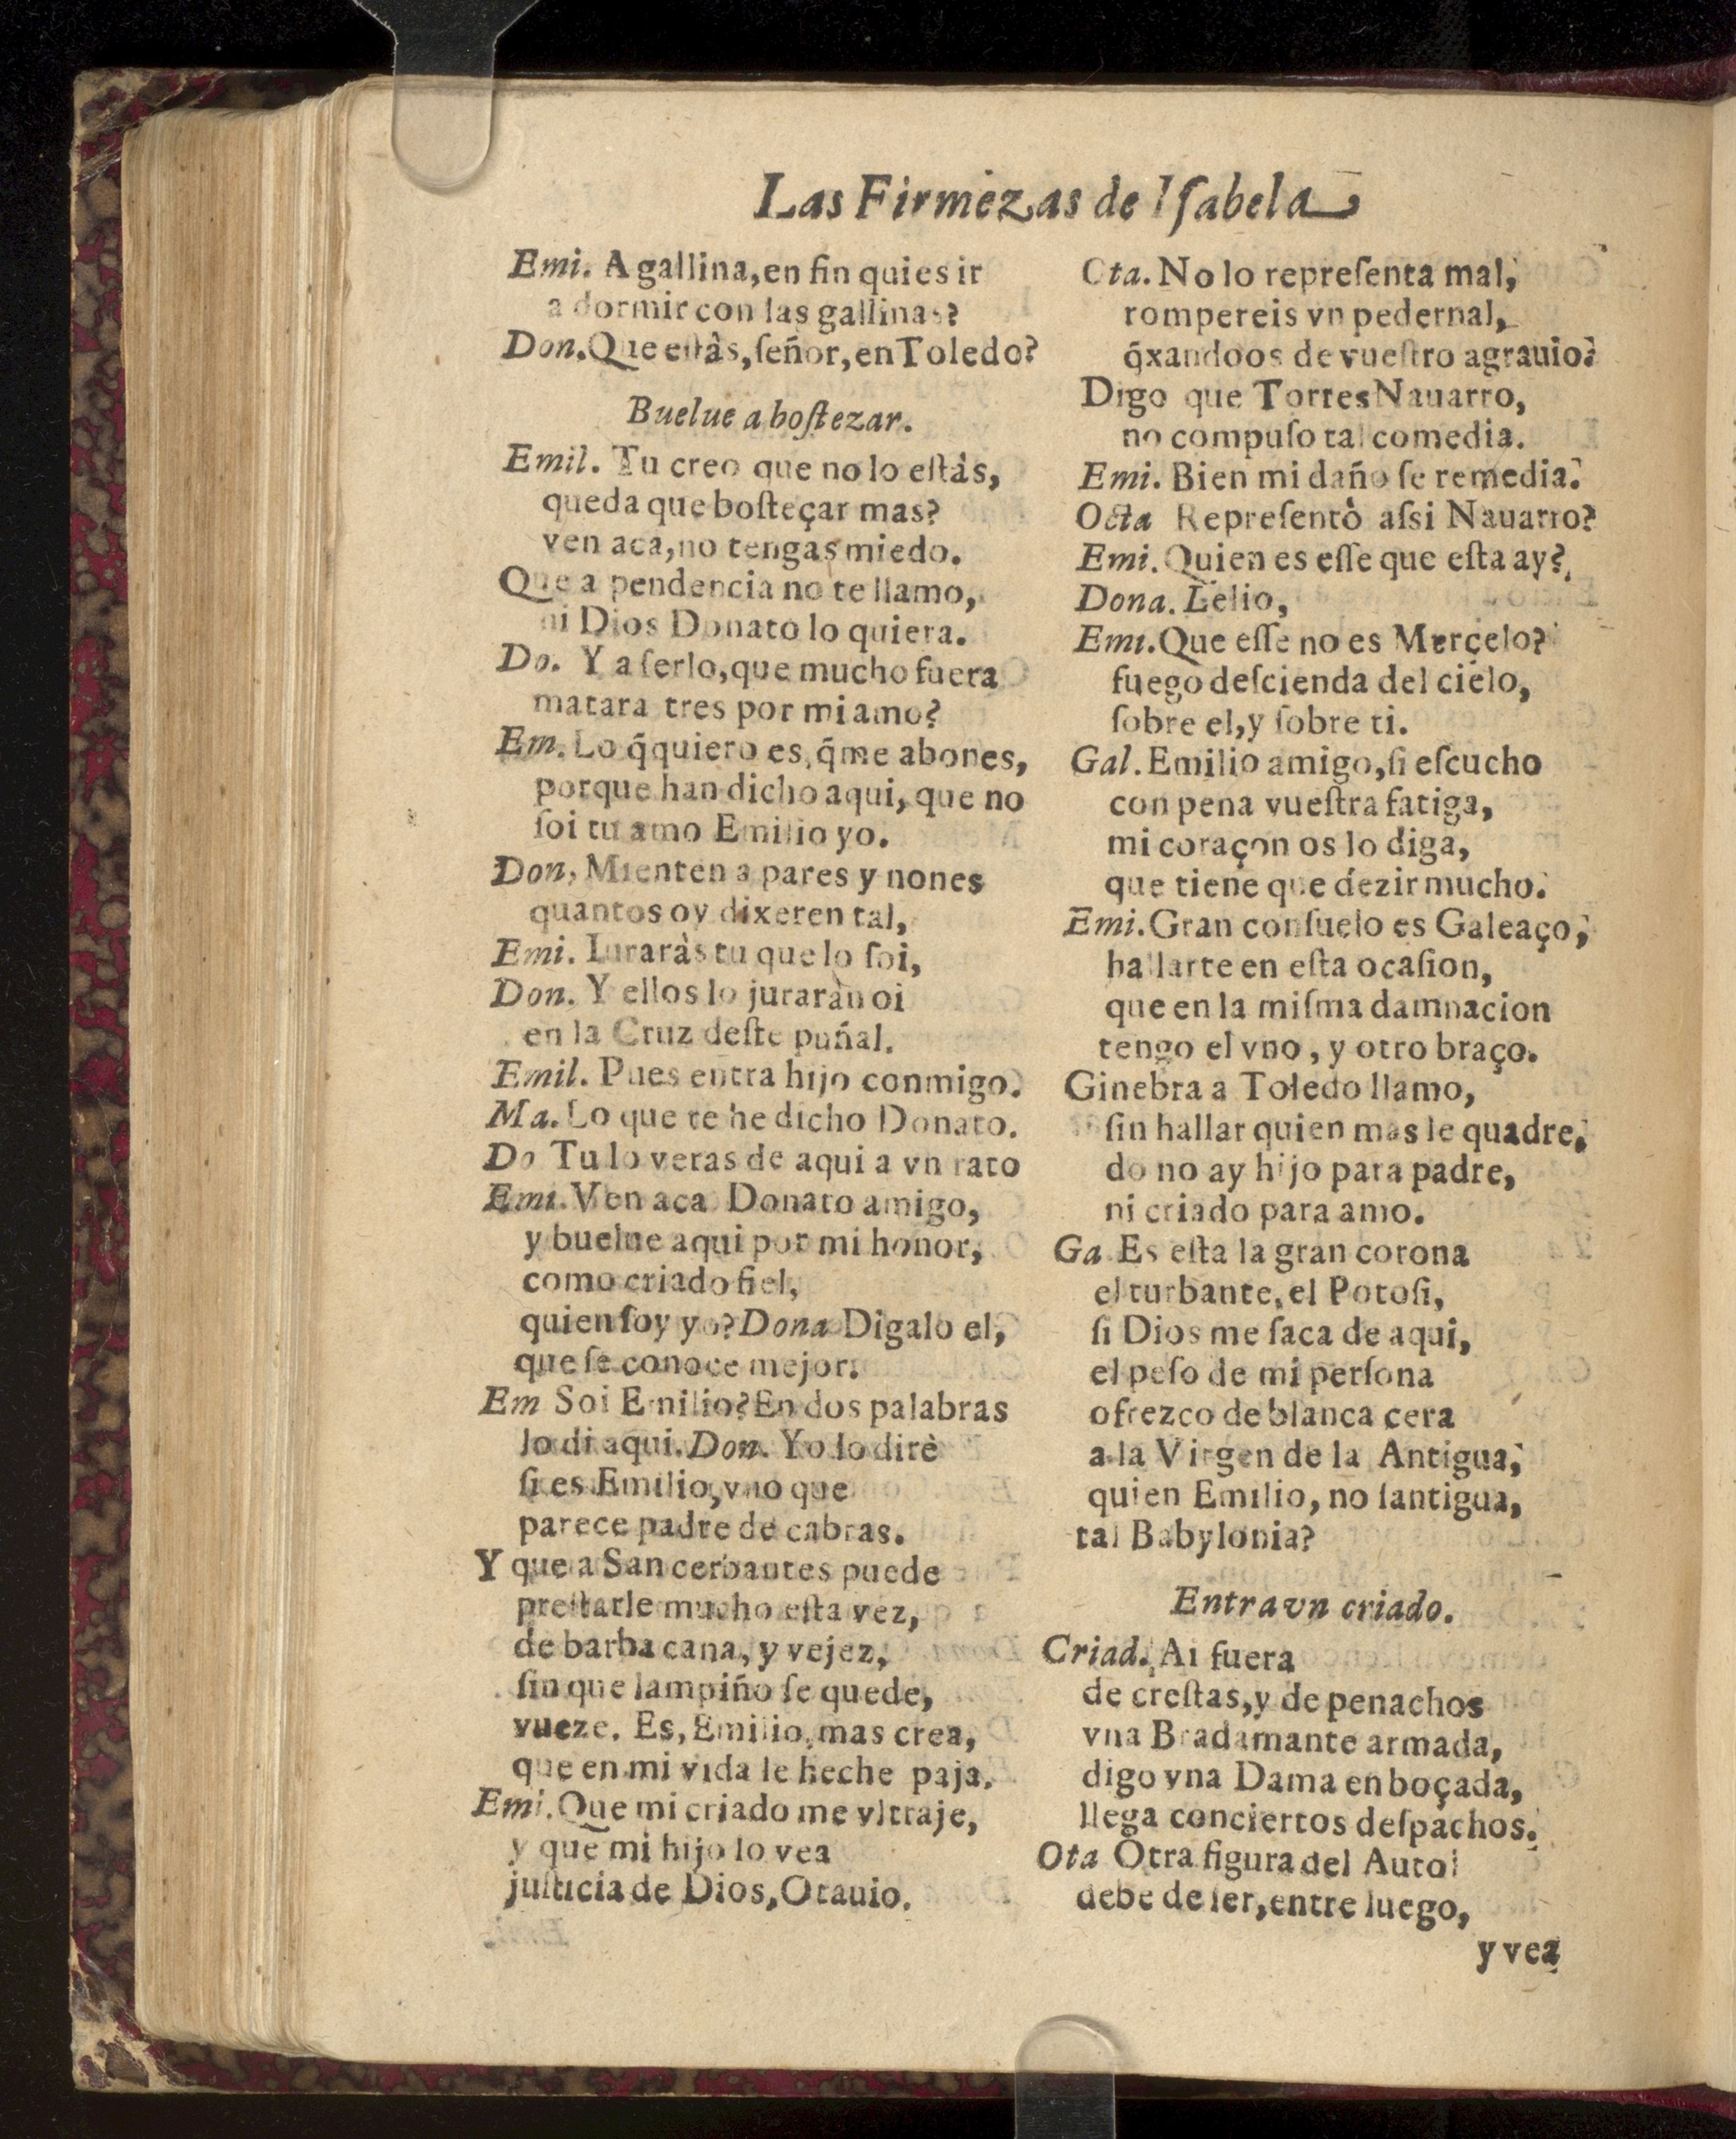 Las Firmezas de Iſabela
Emi. A gallina, en fin quies ir
a dormir con las gallinas?
Don. Que eſtâs, ſeñor, en Toledo?
Buelue a boſtezar.
Emil. Tu creo que no lo eſtàs,
queda que boſteçar mas?
ven aca, no tengas miedo.
Que a pendencia no te llamo,
ni Dios Donato lo quiera.
Do. Y a ſerlo, que mucho fuera
matara tres por mi amo?
Em. Lo q̃ quiero es, q̃ me abones,
porque han dicho aqui, que no
ſoi tu amo Emilio yo.
Don, Mienten a pares y nones
quantos oy dixeren tal,
Emi. Iuraràs tu que lo ſoi,
Don. Y ellos lo juraràn oi
en la Cruz deſte puñal.
Emil. Pues entra hijo conmigo.
Ma. Lo que te he dicho Donato.
Do Tu lo veras de aqui a vn rato
Emi. Ven aca Donato amigo,
y buelue aqui por mi honor,
como criado fiel,
quien ſoy yo? Dona Digalo el,
que ſe conoce mejor.
Em Soi Emilio? En dos palabras
lo di aqui. Don. Yo lo dirè
ſi es Emilio, vno que
parece padre de cabras.
Y que a San cerbantes puede
preſtarle mucho eſta vez,
de barba cana, y vejez,
ſin que lampiño ſe quede,
vueze. Es, Emilio, mas crea,
que en mi vida le heche paja.
Emi. Que mi criado me vltraje,
y que mi hijo lo vea
juſticia de Dios, Otauio.
Ota. No lo repreſenta mal,
rompereis vn pedernal,
q̃xandoos de vueſtro agrauio?
Digo que Torres Nauarro,
no compuſo tal comedia.
Emi. Bien mi daño ſe remedia.
Octa Repreſentò aſsi Nauarro?
Emi. Quien es eſſe que eſta ay?
Dona. Lelio,
Emi. Que eſſe no es Merçelo?
fuego deſcienda del cielo,
ſobre el, y ſobre ti.
Gal. Emilio amigo, ſi eſcucho
con pena vueſtra fatiga,
mi coraçon os lo diga,
que tiene que dezir mucho.
Emi. Gran conſuelo es Galeaço,
hallarte en eſta ocaſion,
que en la miſma damnacion
tengo el vno, y otro braço.
Ginebra a Toledo llamo,
ſin hallar quien mas le quadre,
do no ay hijo para padre,
ni criado para amo.
Ga Es eſta la gran corona
el turbante, el Potoſi,
ſi Dios me ſaca de aqui,
el peſo de mi perſona
ofrezco de blanca cera
a la Virgen de la Antigua,
quien Emilio, no ſantigua,
tal Babylonia?
Entra vn criado.
Criad. Ai fuera
de creſtas, y de penachos
vna Bradamante armada,
digo vna Dama enboçada,
llega conciertos deſpachos.
Ota Otra figura del Auto!
debe de ſer, entre luego,
y vea